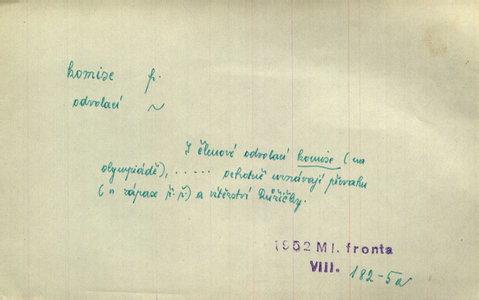 komise f.
odvolací ~
I členové odvolací komise (na
olympiádě), ..... ochotně uznávají převahu
(v zápase ř.ř.) a vítězství Růžičky.
1952 Ml. fronta
VIII. 182-5a